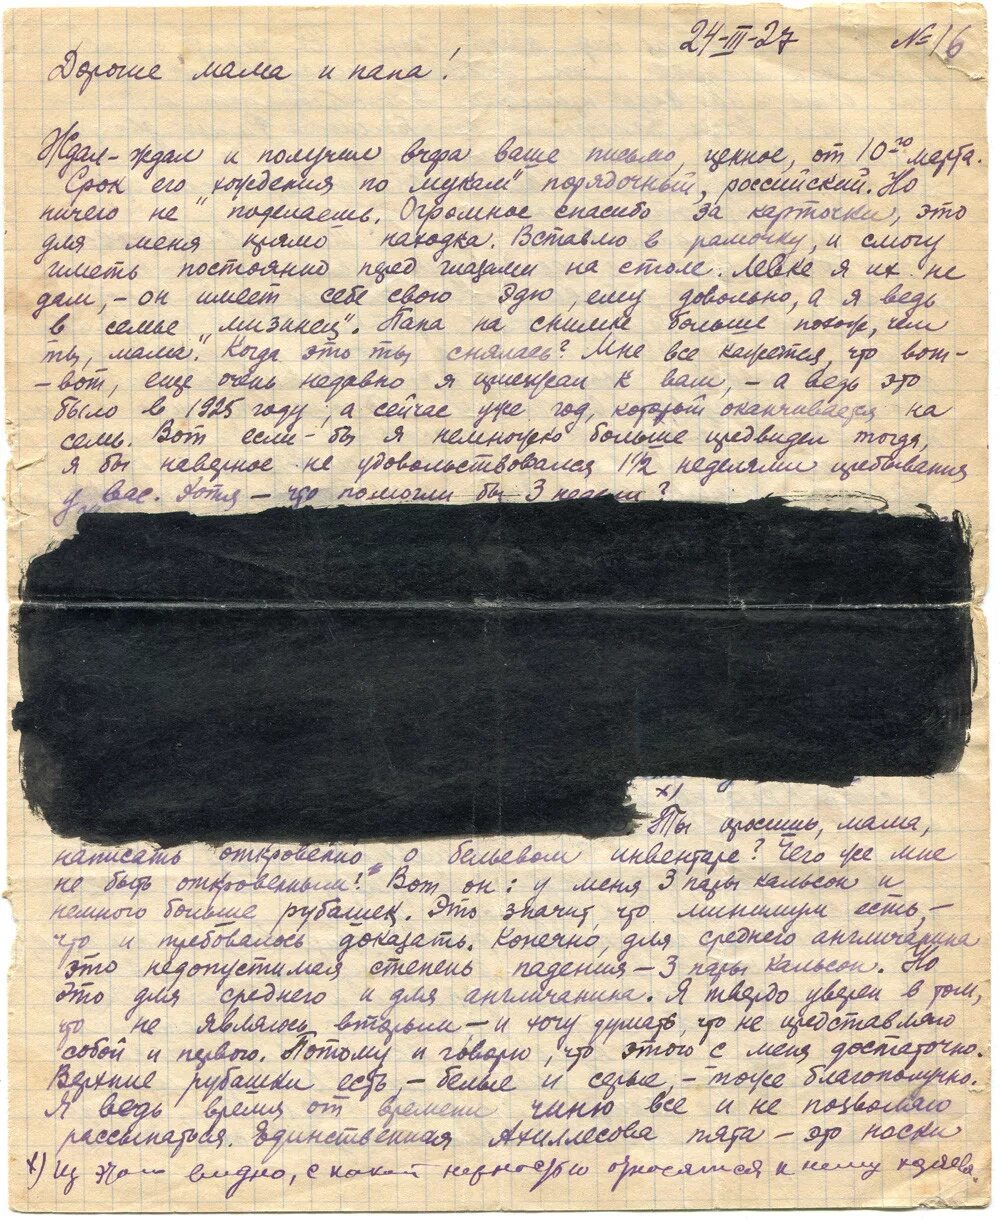 24-III-27 № 16
Дорогие мама и папа!
Ждал-ждал и получил вчера ваше письмо, ценное, от 10го марта.
Срок его „хождения по мукам" порядочный, российский. Но
ничего не поделаешь. Огромное спасибо за карточки, это
для меня прямо находка. Вставлю в рамочку, и смогу
иметь постоянно перед глазами на столе. Левке я их не
дам, – он имеет себе свою Эдю, ему довольно, а я ведь
в семье „мизинец". Папа на снимке больше похож, чем
ты, мама. Когда это ты снялась? Мне все кажется, что вот-
-вот, еще очень недавно я приезжал к вам, – а ведь это
было в 1925 году; а сейчас уже год, который оканчивается на
семь. Вот если-бы я немножко больше предвидел тогда,
я бы наверное не удовольствовался 1½ неделями пребывания
у вас. Хотя – что помогли бы 3 недели?
x)
Ты просишь, мама,
написать откровенно о бельевом инвентаре? Чего же мне
не быть откровенным! Вот он: у меня 3 пары кальсон и
немного больше рубашек. Это значит, что минимум есть, –
что и требовалось доказать. Конечно, для среднего англичанина
это недопустимая степень падения – 3 пары кальсон. Но
это для среднего и для англичанина. Я твердо уверен в том,
что не являюсь вторым – и хочу думать, что не представляю
собой и первого. Потому и говорю, что этого с меня достаточно.
Верхние рубашки есть, – белые и серые, – тоже благополучно.
Я ведь время от времени чиню все и не позволяю
рассыпаться. Единственная Ахиллесова пята – это носки
x) Из этого видно, с какой нежностью относятся к нему хозяева.